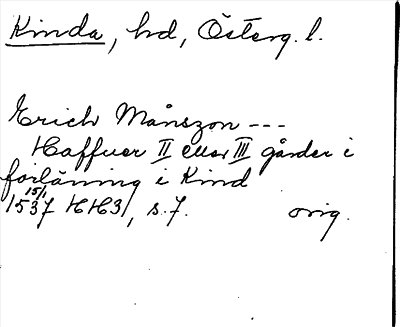 Kinda, hd, Österg. l.
Erich Månszon ---
Haffuer II eller III gårder i
förläning i Kind
15/1
1537 HH31, s. 7. orig.